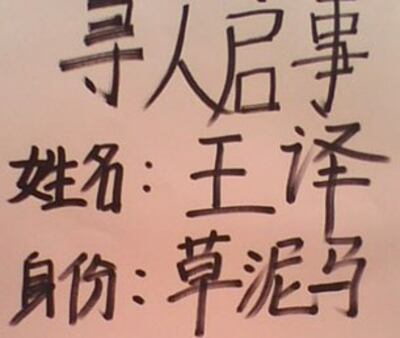 寻人启事
姓名：王译
身份：草泥马